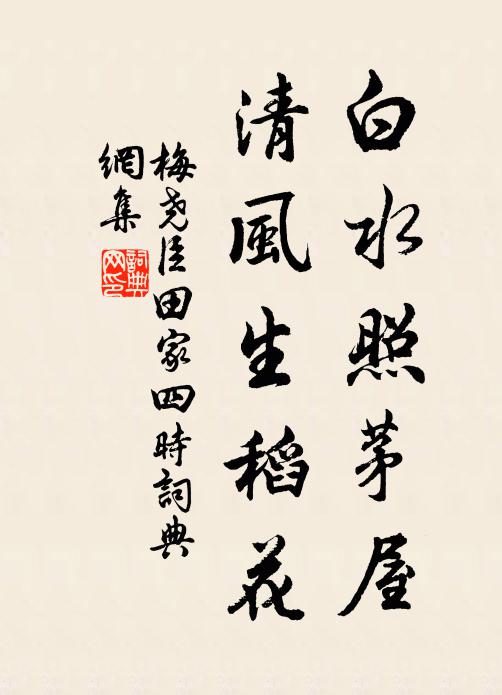 白水照茅屋
清風生稻花
梅尧臣田家四時詞典
網集
詞典网印